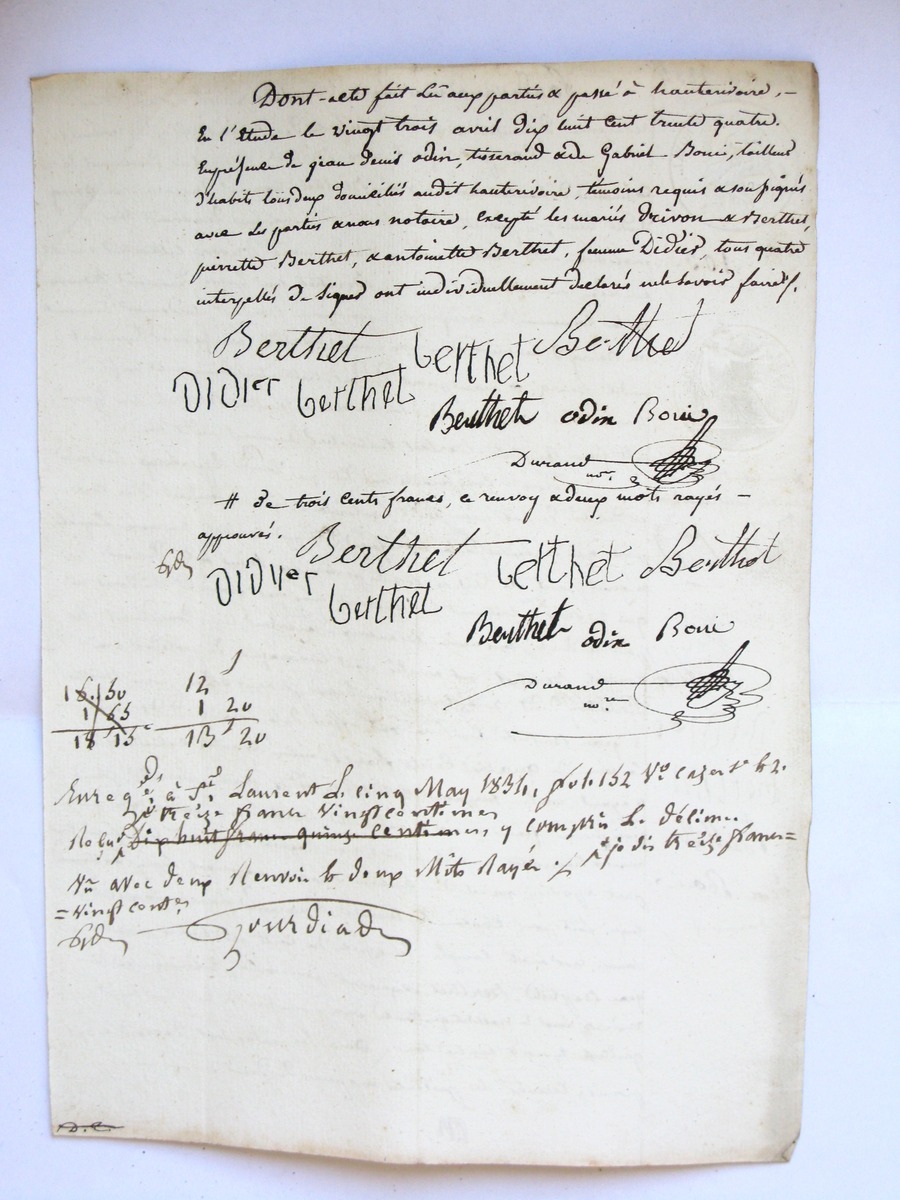 Dont-acte fait Lu aux parties & passé à hauterivoire, –
En l'Etude le vingt trois avril dix huit cent trente quatre.
En présence de jean denis odin, tisserand & de Gabriel Borie, tailleur
d'habits tous deux domiciliés audit hauterivoire, témoins requis & soussignés
avec les parties & nous notaire, Excepté les mariés Drivon & Berthet,
pierrette Berthet, & antoinette Berthet, femme Didier, tous quatre
interpellés de signer ont individuellement déclarés ne le savoir faire /.
Berthet berthet Berthet
DIDIer berthet
Berthet odin Borie
Durand nore
# de trois cents francs, ce renvoy & deux mots rayés –
approuvés.
Berthet berthet Berthet
DIDIer berthet
Berthet odin Borie
Durand nore
16. 50
1 65
18 15c
12
1 20
13 20
Enregé à St Laurent Le cinq May 1834, fol. 152 Vo
treize francs vingt centimes
Reçu Dix huit francs quinze centimes, y compris Le décime
Vu avec deux Renvois & deux Mots Rayés ./. je dis treize francs=
=vingt centes
Gourdiad
D.C.